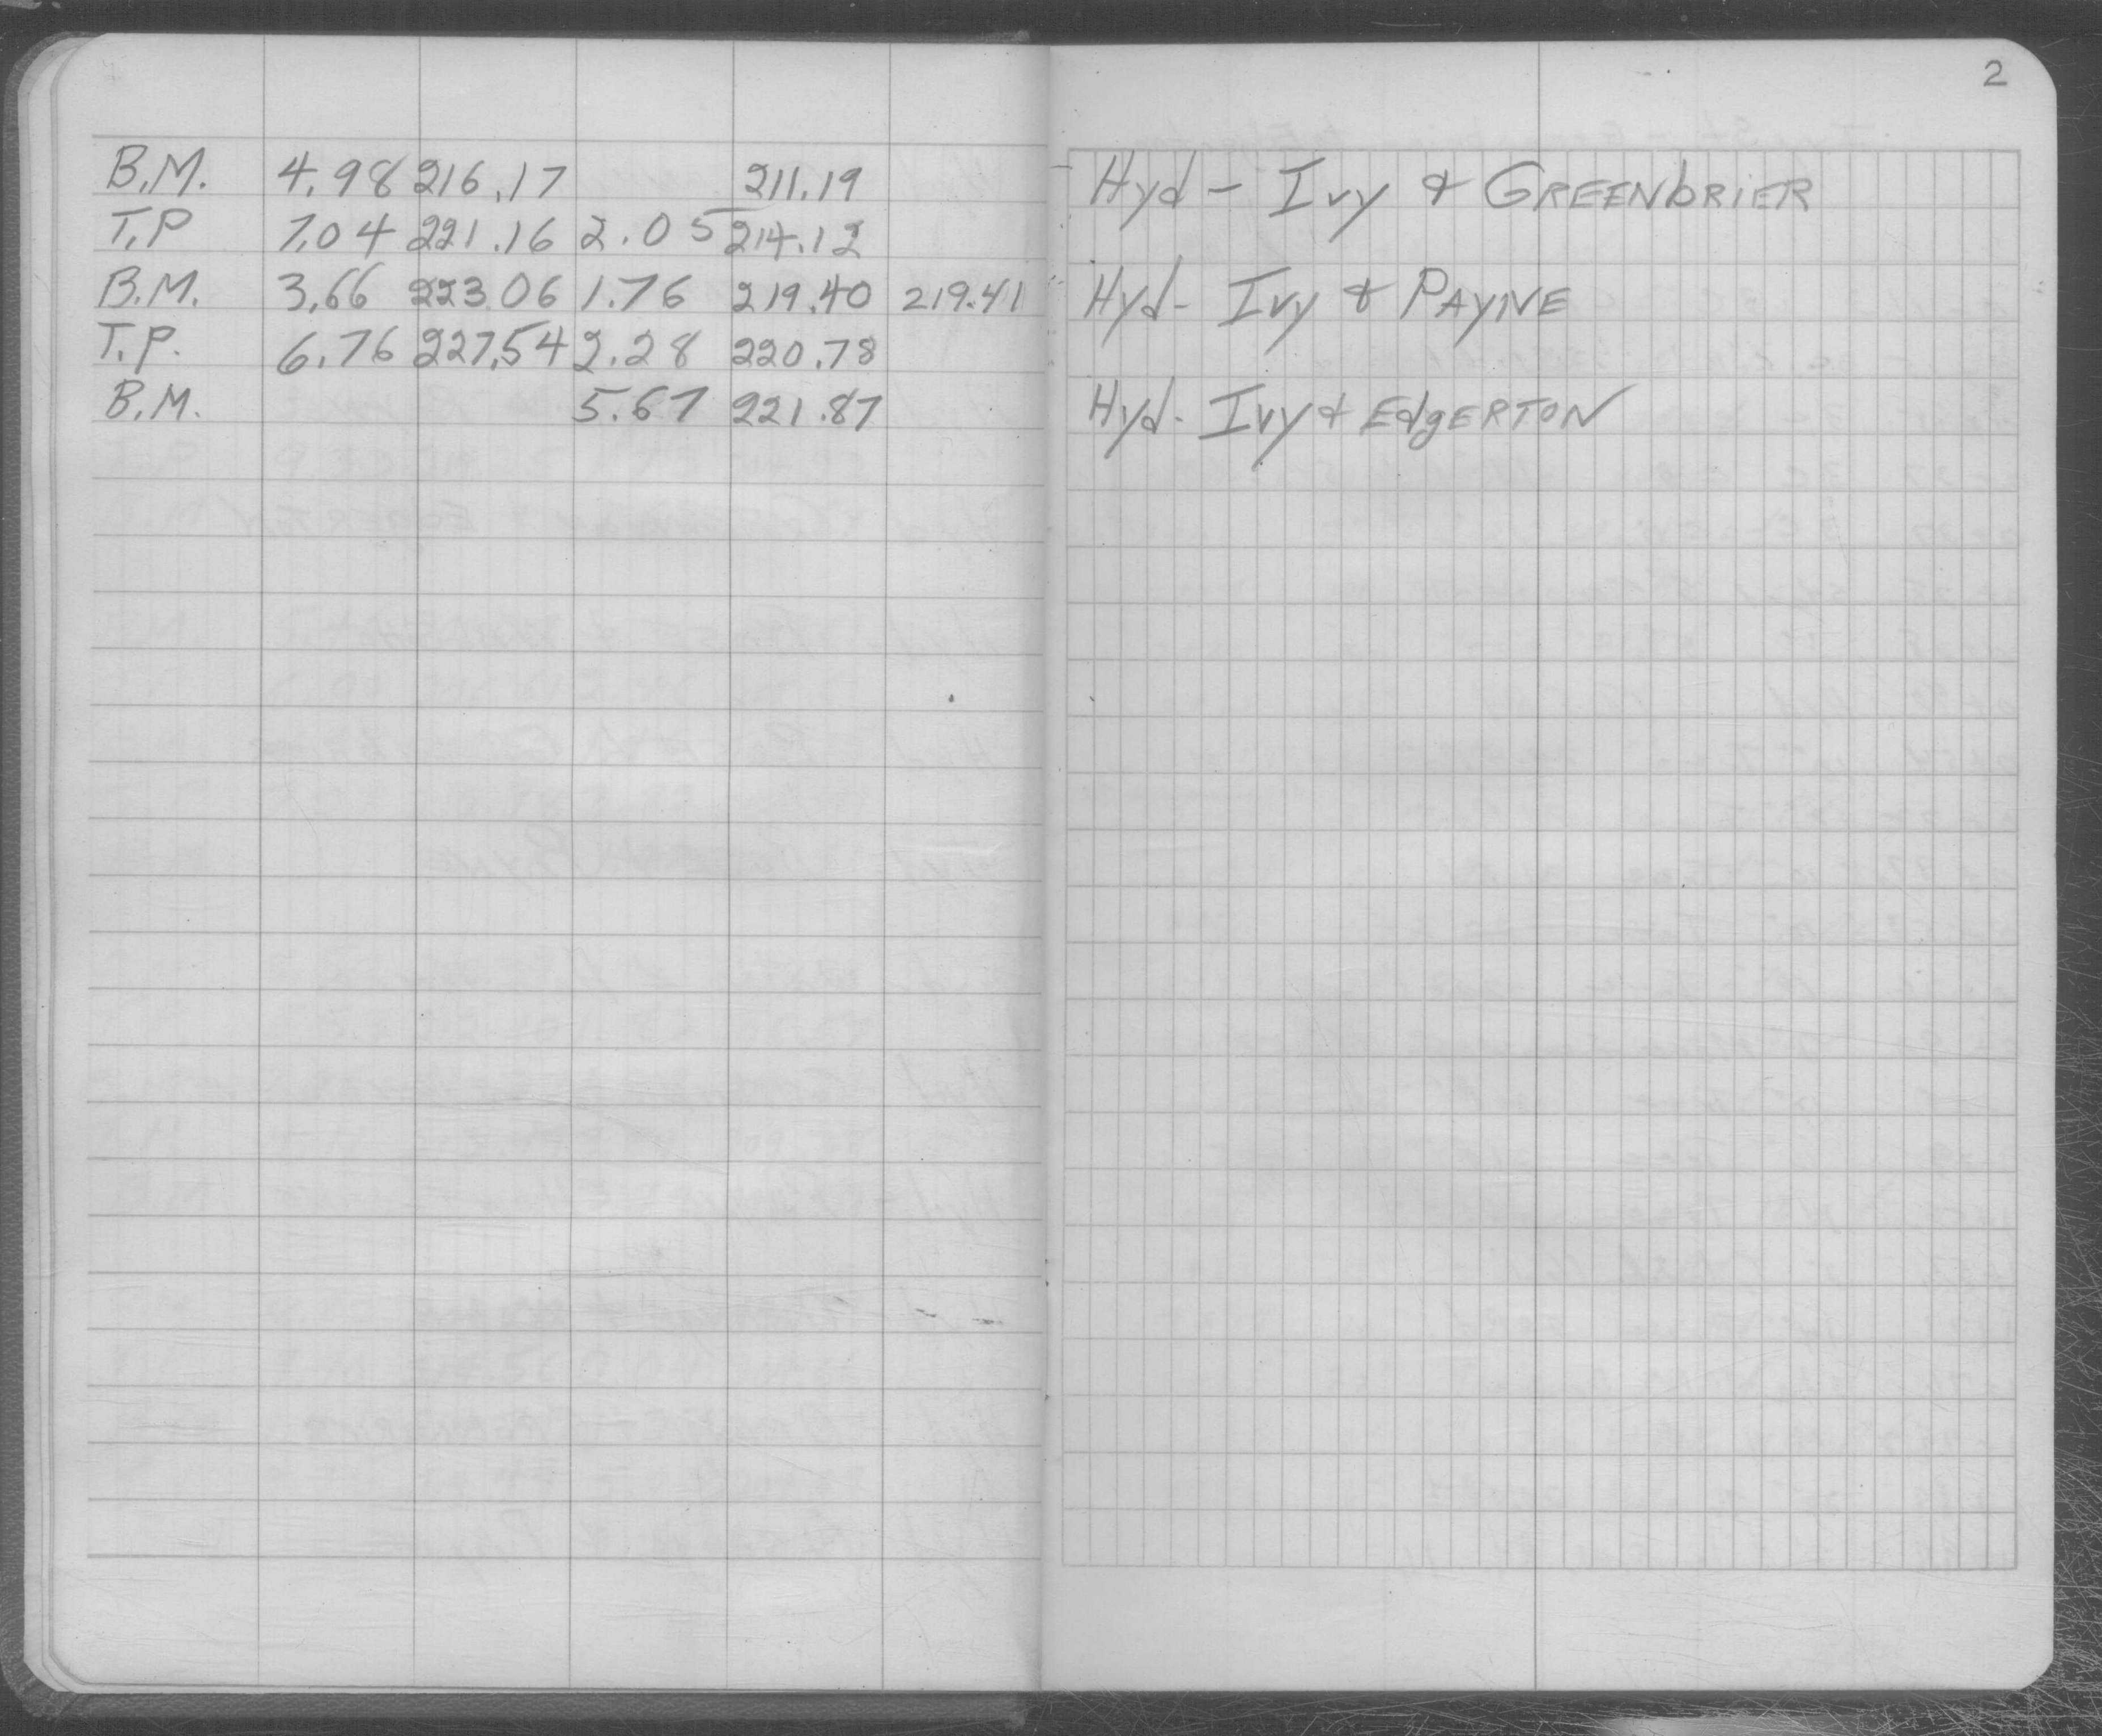 2
B.M. 4.98 216.17 211.19 Hyd - Ivy & GREENbRIER
T.P 7.04 221.16 2.05 214.12
B.M. 3.66 223.06 1.76 219.40 219.41 Hyd- Ivy & PAYNE
T.P. 6.76 227.54 2.28 220.78
B.M. 5.67 221.87 Hyd- Ivy & EdgERTON